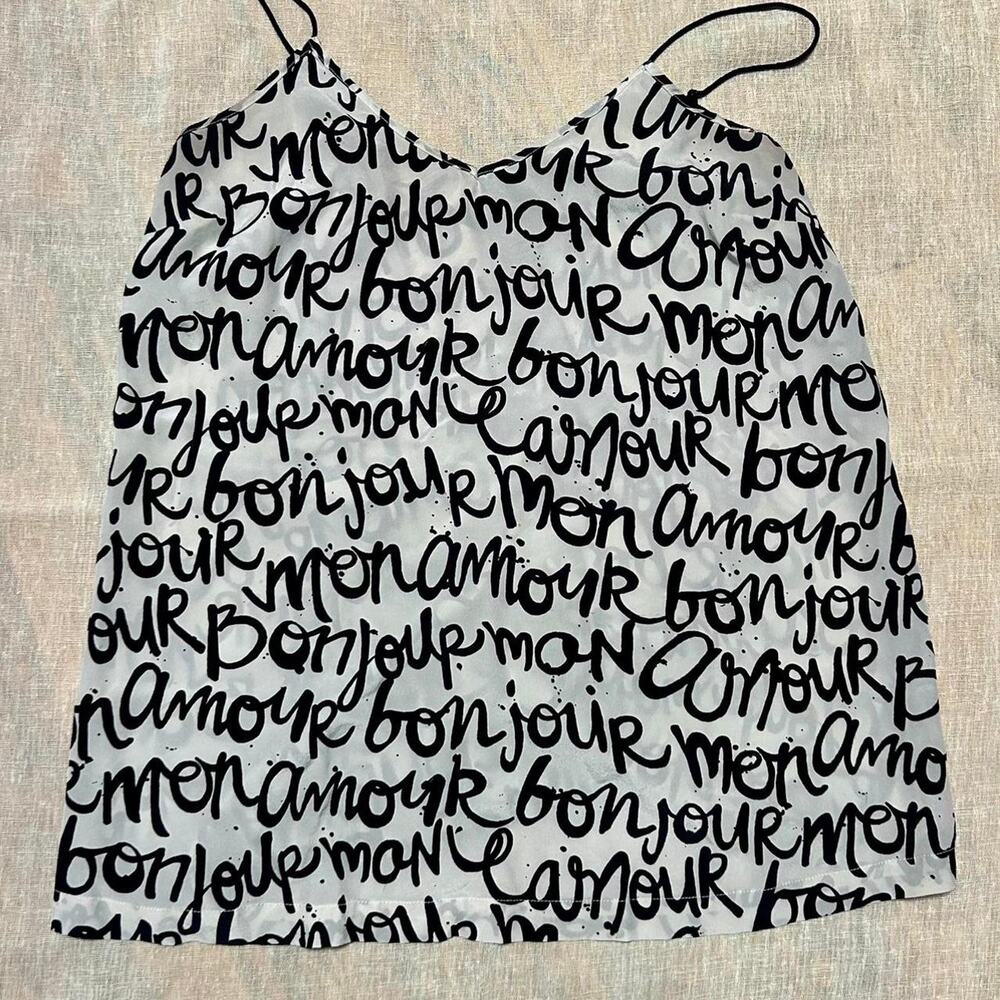 mon amo
ouR mon ouR bonj
R Bonjour moN amour
amouR bonjouR mon am
mon amouR bonjouR mo
onjour moN amouR bonj
uR bonjouR mon amouR b
jouR mon amouR bonjouR
ouR Bonjour moN amouR B
n amouR bonjouR mon amo
mon amouR bonjouR mon
bonjour moN amouR bon
bonjou